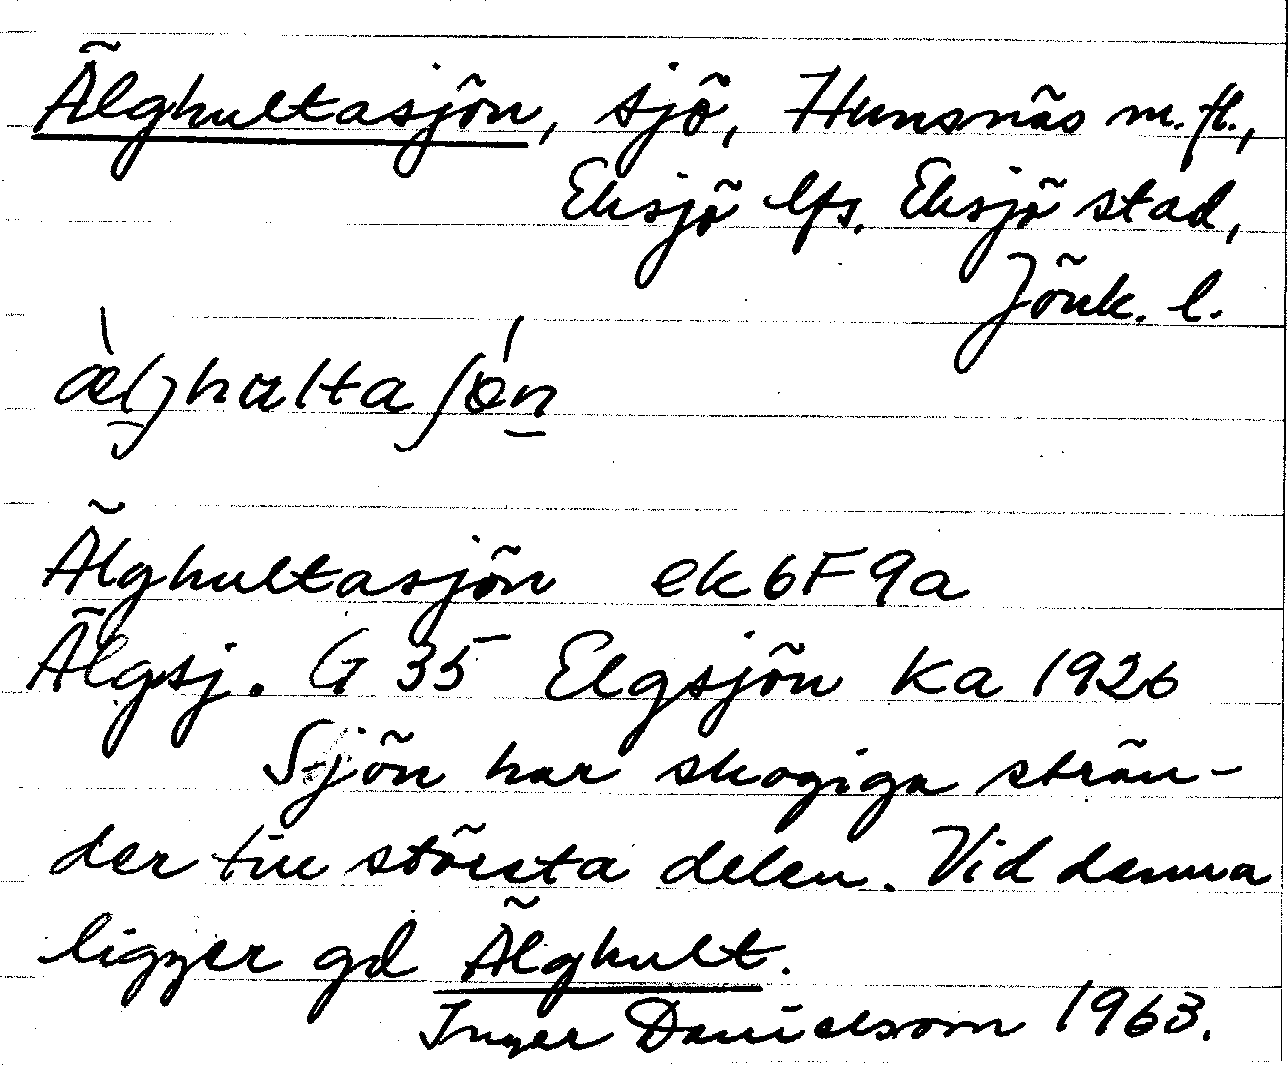 Älghultasjön, sjö, Hunsnäs m.fl.,
Eksjö lfs. Eksjö stad,
Jönk. l.
Älghultasjön ek6F9a
Älgsj. G 35 Elgsjön Ka 1926
Sjön har skogiga strän-
der till största delen. Vid denna
ligger gd Älghult.
Inger Danielsson 1963.